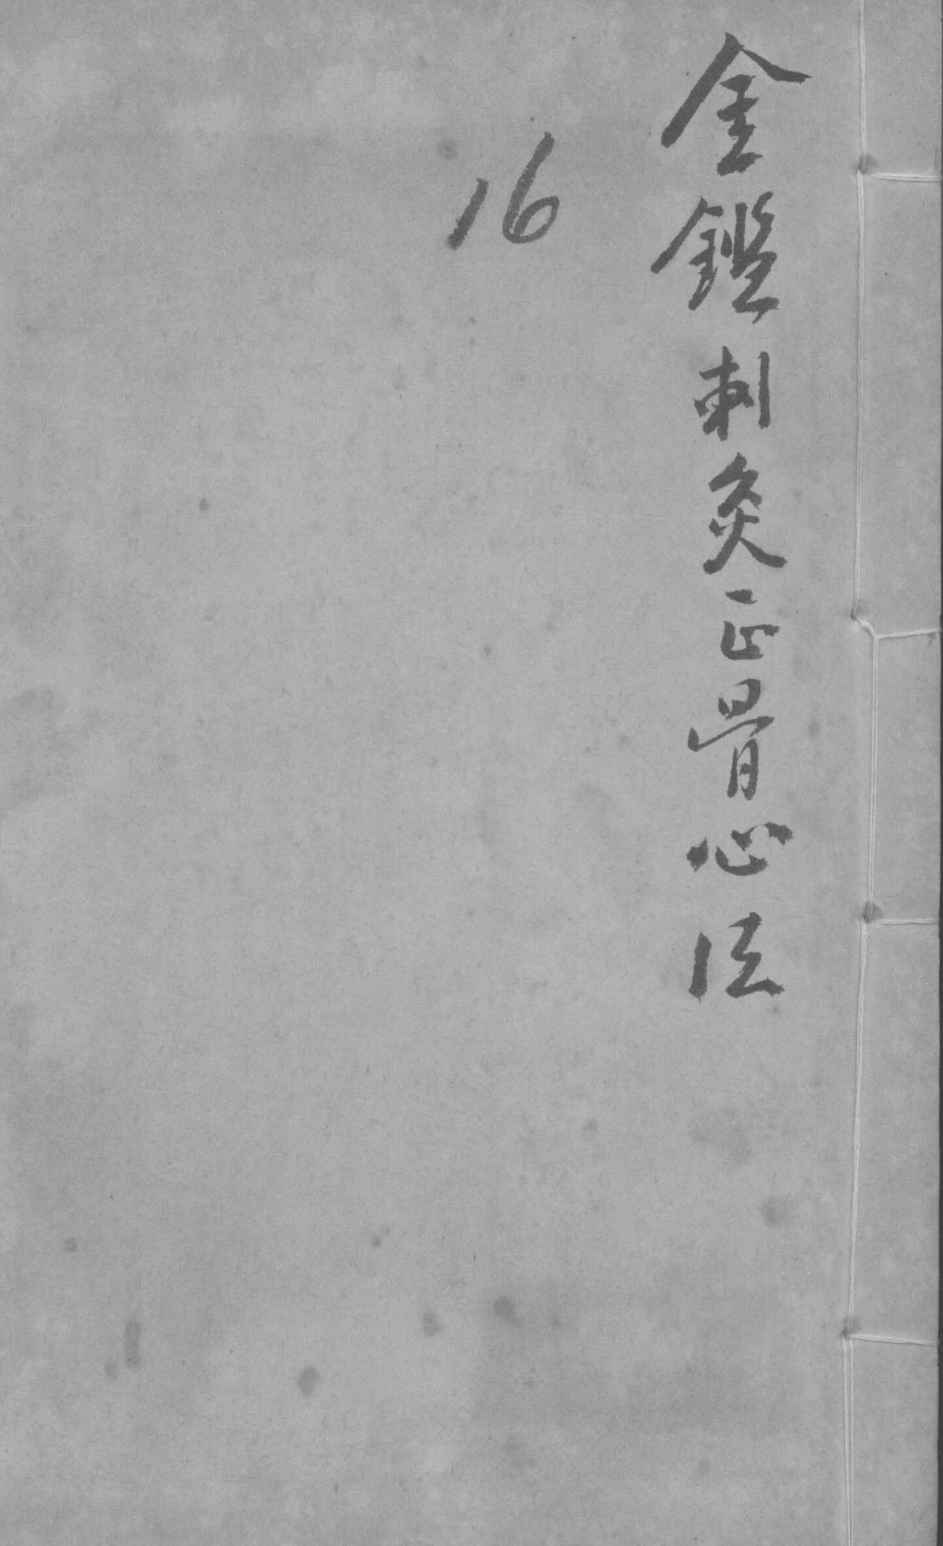 金鑑刺灸正骨心法
16